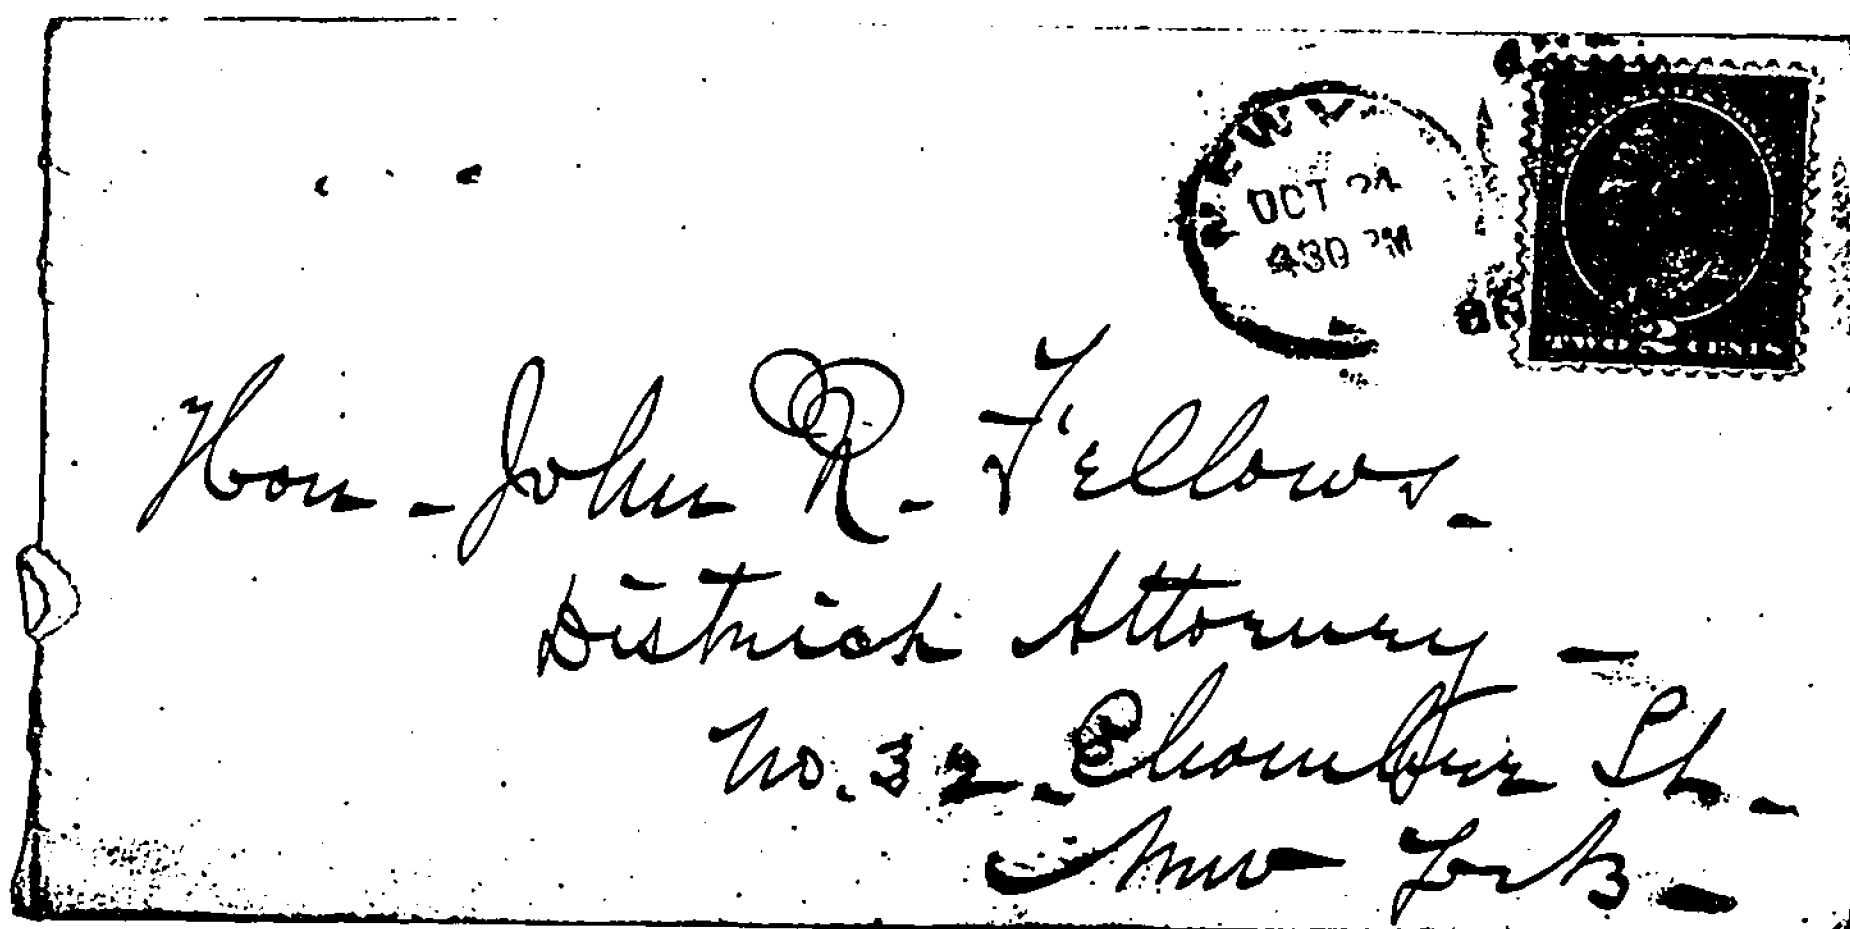 NEW Y
OCT 24
430 PM
TWO 2 CENTS
Hon - John R. Fellows -
District Attorney -
No. 32 - Chamber St -
New York -